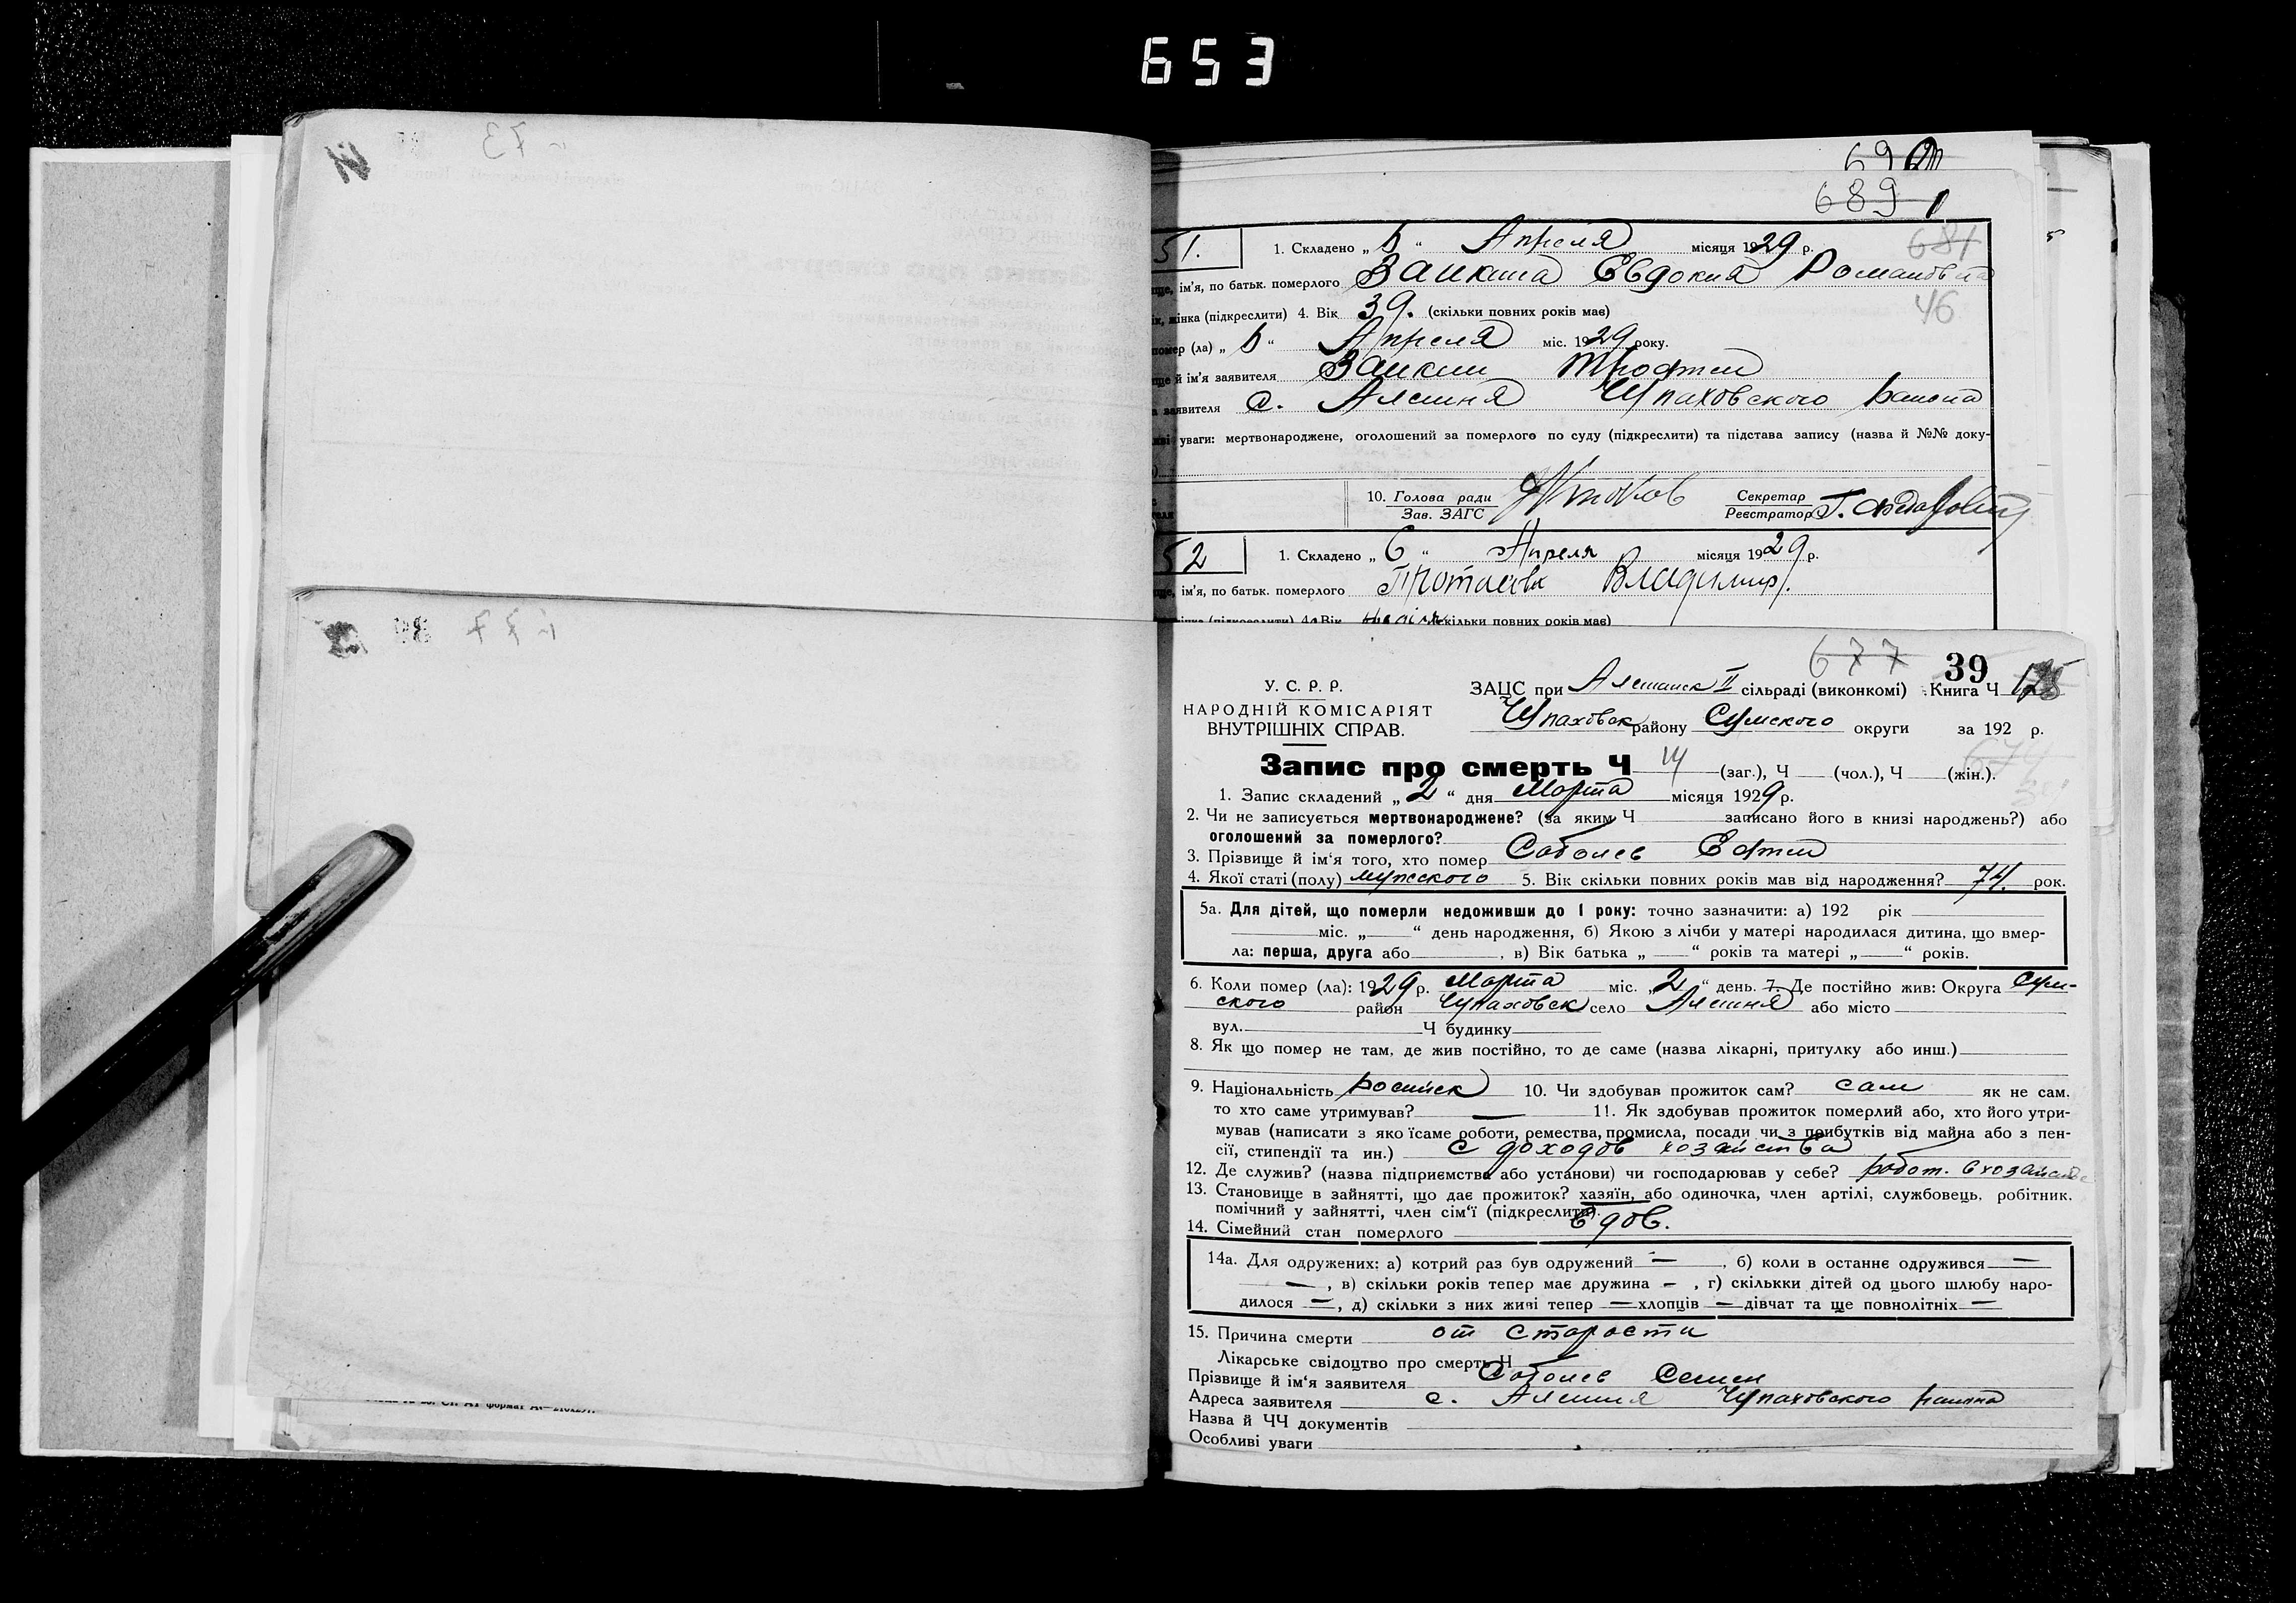 653
690
689
51. 1. Складено „ 5 “ Апреля місяця 1929 р.
684
ім'я, по батьк. померлого Заикина Евдокия Романовна
жінка (підкреслити) 4. Вік 39. (скільки повних років має)
46
помер (ла) „ 5 “ Апреля міс. 1929 року.
й ім'я заявителя Заикин Трофим
заявителя с. Алешня Чупаховского района
уваги: мертвонароджене, оголошений за померлого по суду (підкреслити) та підстава запису (назва й №№ доку-
10. Голова ради Секретар
Зав. ЗАГС Реєстратор
52 1. Складено „ 6 “ Апреля місяця 1929 р.
ім'я, по батьк. померлого Протасов Владимир
Вік скільки повних років має)
677 39
У. С. Р. Р. ЗАЦС при Алешанск II сільраді (виконкомі) Книга Ч
НАРОДНІЙ КОМІСАРІЯТ Чупаховск району Сумского округи за 192 р.
ВНУТРІШНІХ СПРАВ.
Запис про смерть Ч 14 (заг.), Ч (чол.), Ч (жін.).
674
1. Запис складений „ 2 “ дня Марта місяця 1929 р.
2. Чи не записується мертвонароджене? (за яким Ч записано його в книзі народжень?) або
оголошений за померлого?
3. Прізвище й ім'я того, хто помер Соболев Ефим
4. Якої статі (полу) мужского 5. Вік скільки повних років мав від народження? 74. рок.
5а. Для дітей, що померли недоживши до 1 року: точно зазначити: а) 192 рік
міс. „ “ день народження, б) Якою з лічби у матері народилася дитина, що вмер-
ла: перша, друга або , в) Вік батька „ “ років та матері „ “ років.
6. Коли помер (ла): 1929 р. Марта міс. „ 2 “ день. 7. Де постійно жив: Округа Сум-
ского район Чупаховск село Алешня або місто
вул. Ч будинку
8. Як що помер не там, де жив постійно, то де саме (назва лікарні, притулку або инш.)
9. Національність россииск 10. Чи здобував прожиток сам? сам як не сам,
то хто саме утримував? — 11. Як здобував прожиток померлий або, хто його утри-
мував (написати з яко їсаме роботи, ремества, промисла, посади чи з прибутків від майна або з пен-
сії, стипендії та ин.) с доходов хозяйства
12. Де служив? (назва підприємства або установи) чи господарював у себе? работ. в хозяйстве
13. Становище в зайнятті, що дає прожиток? хазяїн, або одиночка, член артілі, службовець, робітник,
помічний у зайнятті, член сім'ї (підкреслити).
14. Сімейний стан померлого вдов.
14а. Для одружених: а) котрий раз був одружений — , б) коли в останнє одружився —
— , в) скільки років тепер має дружина — , г) скількки дітей од цього шлюбу наро-
дилося — , д) скільки з них живі тепер — хлопців — дівчат та ще повнолітніх —
15. Причина смерти от старости
Лікарське свідоцтво про смерть Ч
Прізвище й ім'я заявителя Соболев Семен
Адреса заявителя с. Алешня Чупаховского района
Назва й ЧЧ документів
Особливі уваги